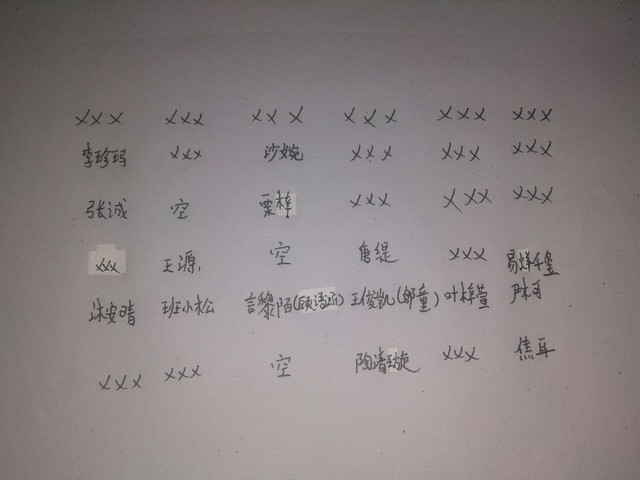 XXX XXX XXX XXX XXX XXX
李珍玛 XXX 沙婉 XXX XXX XXX
张诚 空 栗梓 XXX XXX XXX
XXX 王源 空 唐缇 XXX 易烊千玺
沫安晴 班小松 言黎陌(顾清疏) 王俊凯(邬童) 叶梓萱 陈可
XXX XXX 空 陶清璇 XXX 焦耳